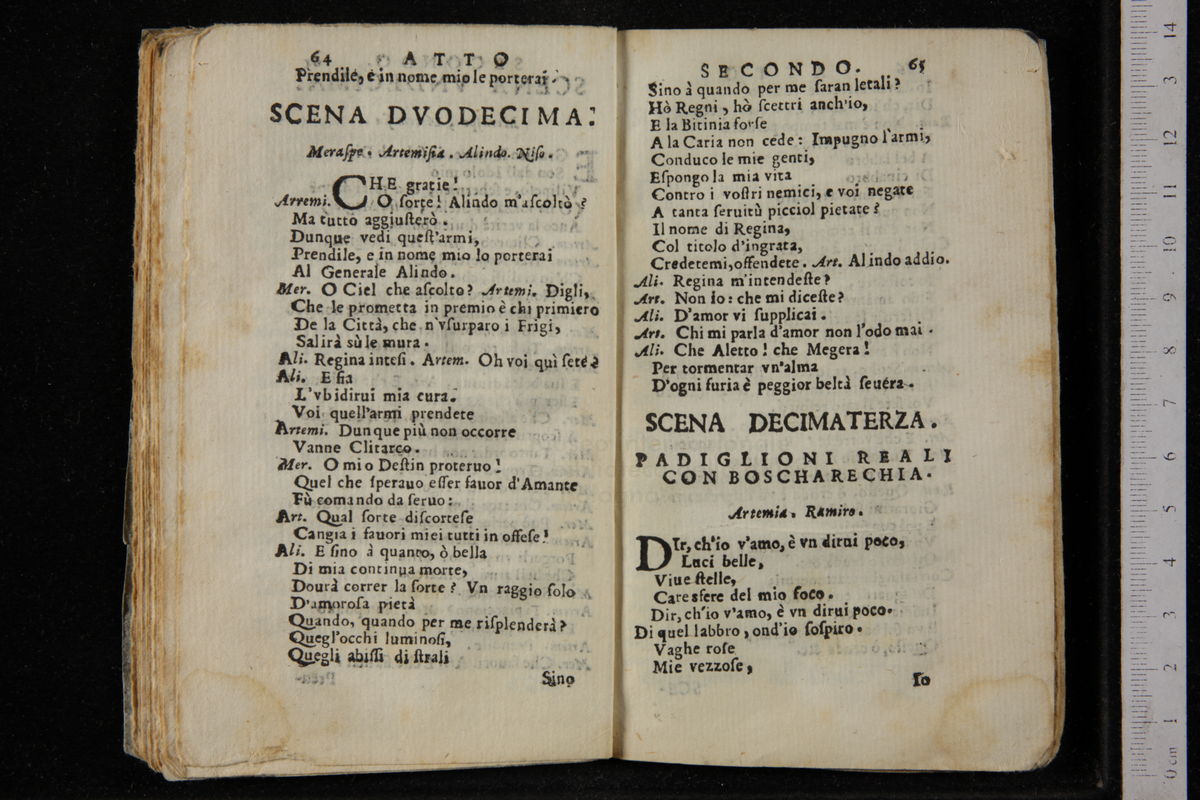 64 ATTO
Prendile, e in nome mio le porterai.
SCENA DVODECIMA.
Meraſpe. Artemiſia. Alindo. Niſo.
CHE gratie!
Artemi. O ſorte! Alindo m'aſcoltò?
Ma tutto aggiuſterò.
Dunque vedi queſt'armi,
Prendile, e in nome mio lo porterai
Al Generale Alindo.
Mer. O Ciel che aſcolto? Artemi. Digli,
Che le prometta in premio è chi primiero
De la Città, che n'vſurparo i Frigi,
Salirà sù le mura.
Ali. Regina inteſi. Artem. Oh voi quì ſete?
Ali. E ſia
L'vbidirui mia cura.
Voi quell'armi prendete
Artemi. Dunque più non occorre
Vanne Clitarco.
Mer. O mio Deſtin proteruo!
Quel che ſperauo eſſer fauor d'Amante
Fù comando da ſeruo:
Art. Qual ſorte diſcorteſe
Cangia i fauori miei tutti in offeſe!
Ali. E ſino à quanto, ò bella
Di mia continua morte,
Dourà correr la ſorte? Vn raggio ſolo
D'amoroſa pietà
Quando, quando per me riſplenderà?
Quegl'occhi luminoſi,
Quegli abiſſi di ſtrali
Sino
SECONDO. 65
Sino à quando per me ſaran letali?
Hò Regni, hò ſcettri anch'io,
E la Bitinia forſe
A la Caria non cede: Impugno l'armi,
Conduco le mie genti,
Eſpongo la mia vita
Contro i voſtri nemici, e voi negate
A tanta ſeruitù picciol pietate?
Il nome di Regina,
Col titolo d'ingrata,
Credetemi, offendete. Art. Alindo addio.
Ali. Regina m'intendeſte?
Art. Non Io: che mi diceſte?
Ali. D'amor vi ſupplicai.
Art. Chi mi parla d'amor non l'odo mai.
Ali. Che Aletto! che Megera!
Per tormentar vn'alma
D'ogni furia è peggior beltà ſeuera.
SCENA DECIMATERZA.
PADIGLIONI REALI
CON BOSCHARECHIA.
Artemia. Ramiro.
DIr, ch'io v'amo, è vn dirui poco,
Luci belle,
Viue ſtelle,
Care sfere del mio foco.
Dir, ch'io v'amo, è vn dirui poco.
Di quel labbro, ond'io ſoſpiro.
Vaghe roſe
Mie vezzoſe,
Io